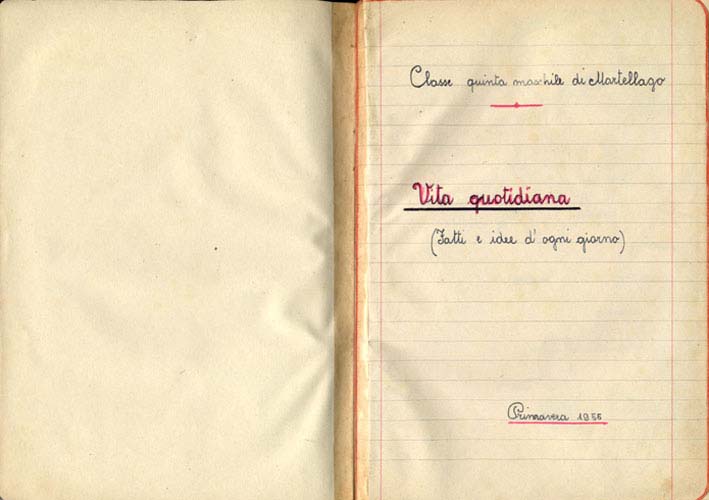 Classe quinta maschile di Martellago
Vita quotidiana
(Fatti e idee d'ogni giorno)
Primavera 1956